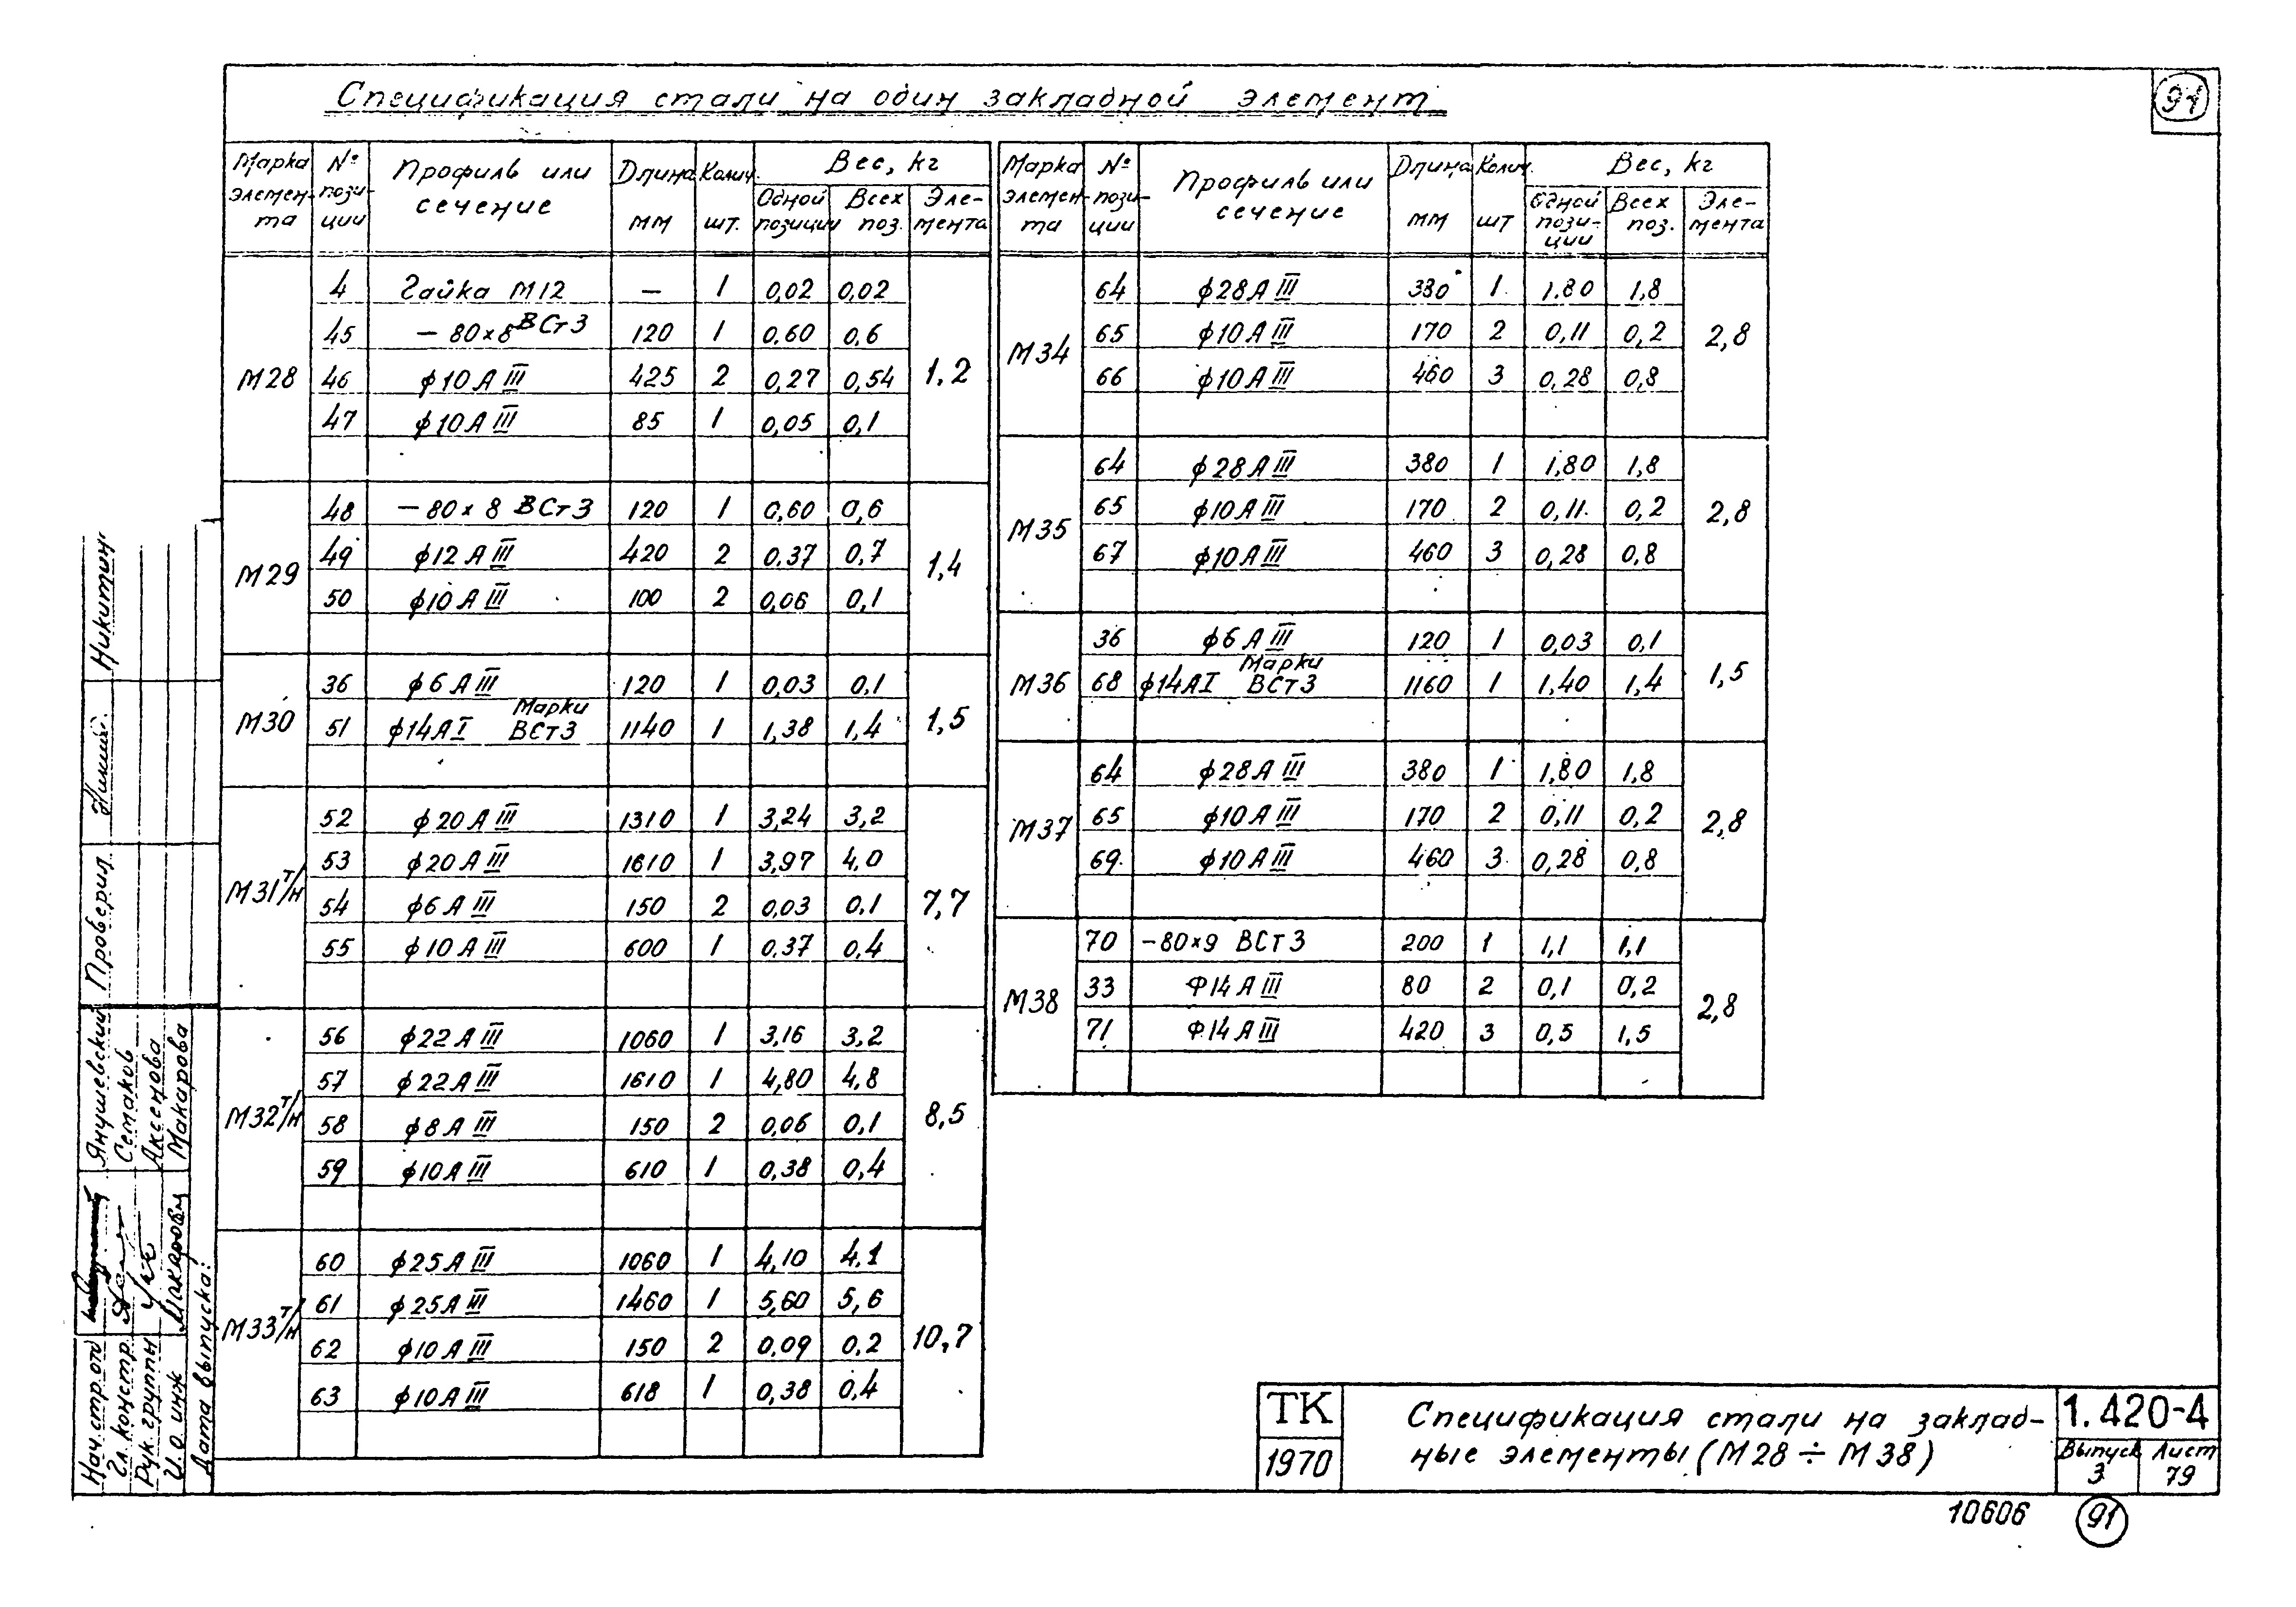 Спецификация стали на один закладной элемент
91
Марка элемента | № позиции | Профиль или сечение | Длина мм | Колич. шт. | Вес, кг
Одной позиции | Всех поз. | Элемента
М28
4 Гайка М12 — 1 0,02 0,02
45 – 80×8 ВСт3 120 1 0,60 0,6
46 ϕ10АIII 425 2 0,27 0,54
47 ϕ10АIII 85 1 0,05 0,1
1,2
М29
48 – 80×8 ВСт3 120 1 0,60 0,6
49 ϕ12АIII 420 2 0,37 0,7
50 ϕ10АIII 100 2 0,06 0,1
1,4
М30
36 ϕ6АIII 120 1 0,03 0,1
51 ϕ14АI Марки ВСт3 1140 1 1,38 1,4
1,5
М31т/н
52 ϕ20АIII 1310 1 3,24 3,2
53 ϕ20АIII 1610 1 3,97 4,0
54 ϕ6АIII 150 2 0,03 0,1
55 ϕ10АIII 600 1 0,37 0,4
7,7
М32т/н
56 ϕ22АIII 1060 1 3,16 3,2
57 ϕ22АIII 1610 1 4,80 4,8
58 ϕ8АIII 150 2 0,06 0,1
59 ϕ10АIII 610 1 0,38 0,4
8,5
М33т/н
60 ϕ25АIII 1060 1 4,10 4,1
61 ϕ25АIII 1460 1 5,60 5,6
62 ϕ10АIII 150 2 0,09 0,2
63 ϕ10АIII 618 1 0,38 0,4
10,7
Марка элемента | № позиции | Профиль или сечение | Длина мм | Колич. шт | Вес, кг
Одной позиции | Всех поз. | Элемента
М34
64 ϕ28АIII 380 1 1.80 1,8
65 ϕ10АIII 170 2 0,11 0,2
66 ϕ10АIII 460 3 0,28 0,8
2,8
М35
64 ϕ28АIII 380 1 1,80 1,8
65 ϕ10АIII 170 2 0,11 0,2
67 ϕ10АIII 460 3 0,28 0,8
2,8
М36
36 ϕ6АIII 120 1 0,03 0,1
68 ϕ14АI Марки ВСт3 1160 1 1,40 1,4
1,5
М37
64 ϕ28АIII 380 1 1,80 1,8
65 ϕ10АIII 170 2 0,11 0,2
69 ϕ10АIII 460 3 0,28 0,8
2,8
М38
70 –80×9 ВСт3 200 1 1,1 1,1
33 Ф14АIII 80 2 0,1 0,2
71 Ф14АIII 420 3 0,5 1,5
2,8
Нач.стр.отд Янушевский Проверил Никитин
Гл. констр. Семаков
Рук. группы Аксенова
И.о. инж Макарова
Дата выпуска:
ТК
1970
Спецификация стали на заклад-
ные элементы (М28 ÷ М38)
1.420-4
Выпуск 3
Лист 79
10606
91